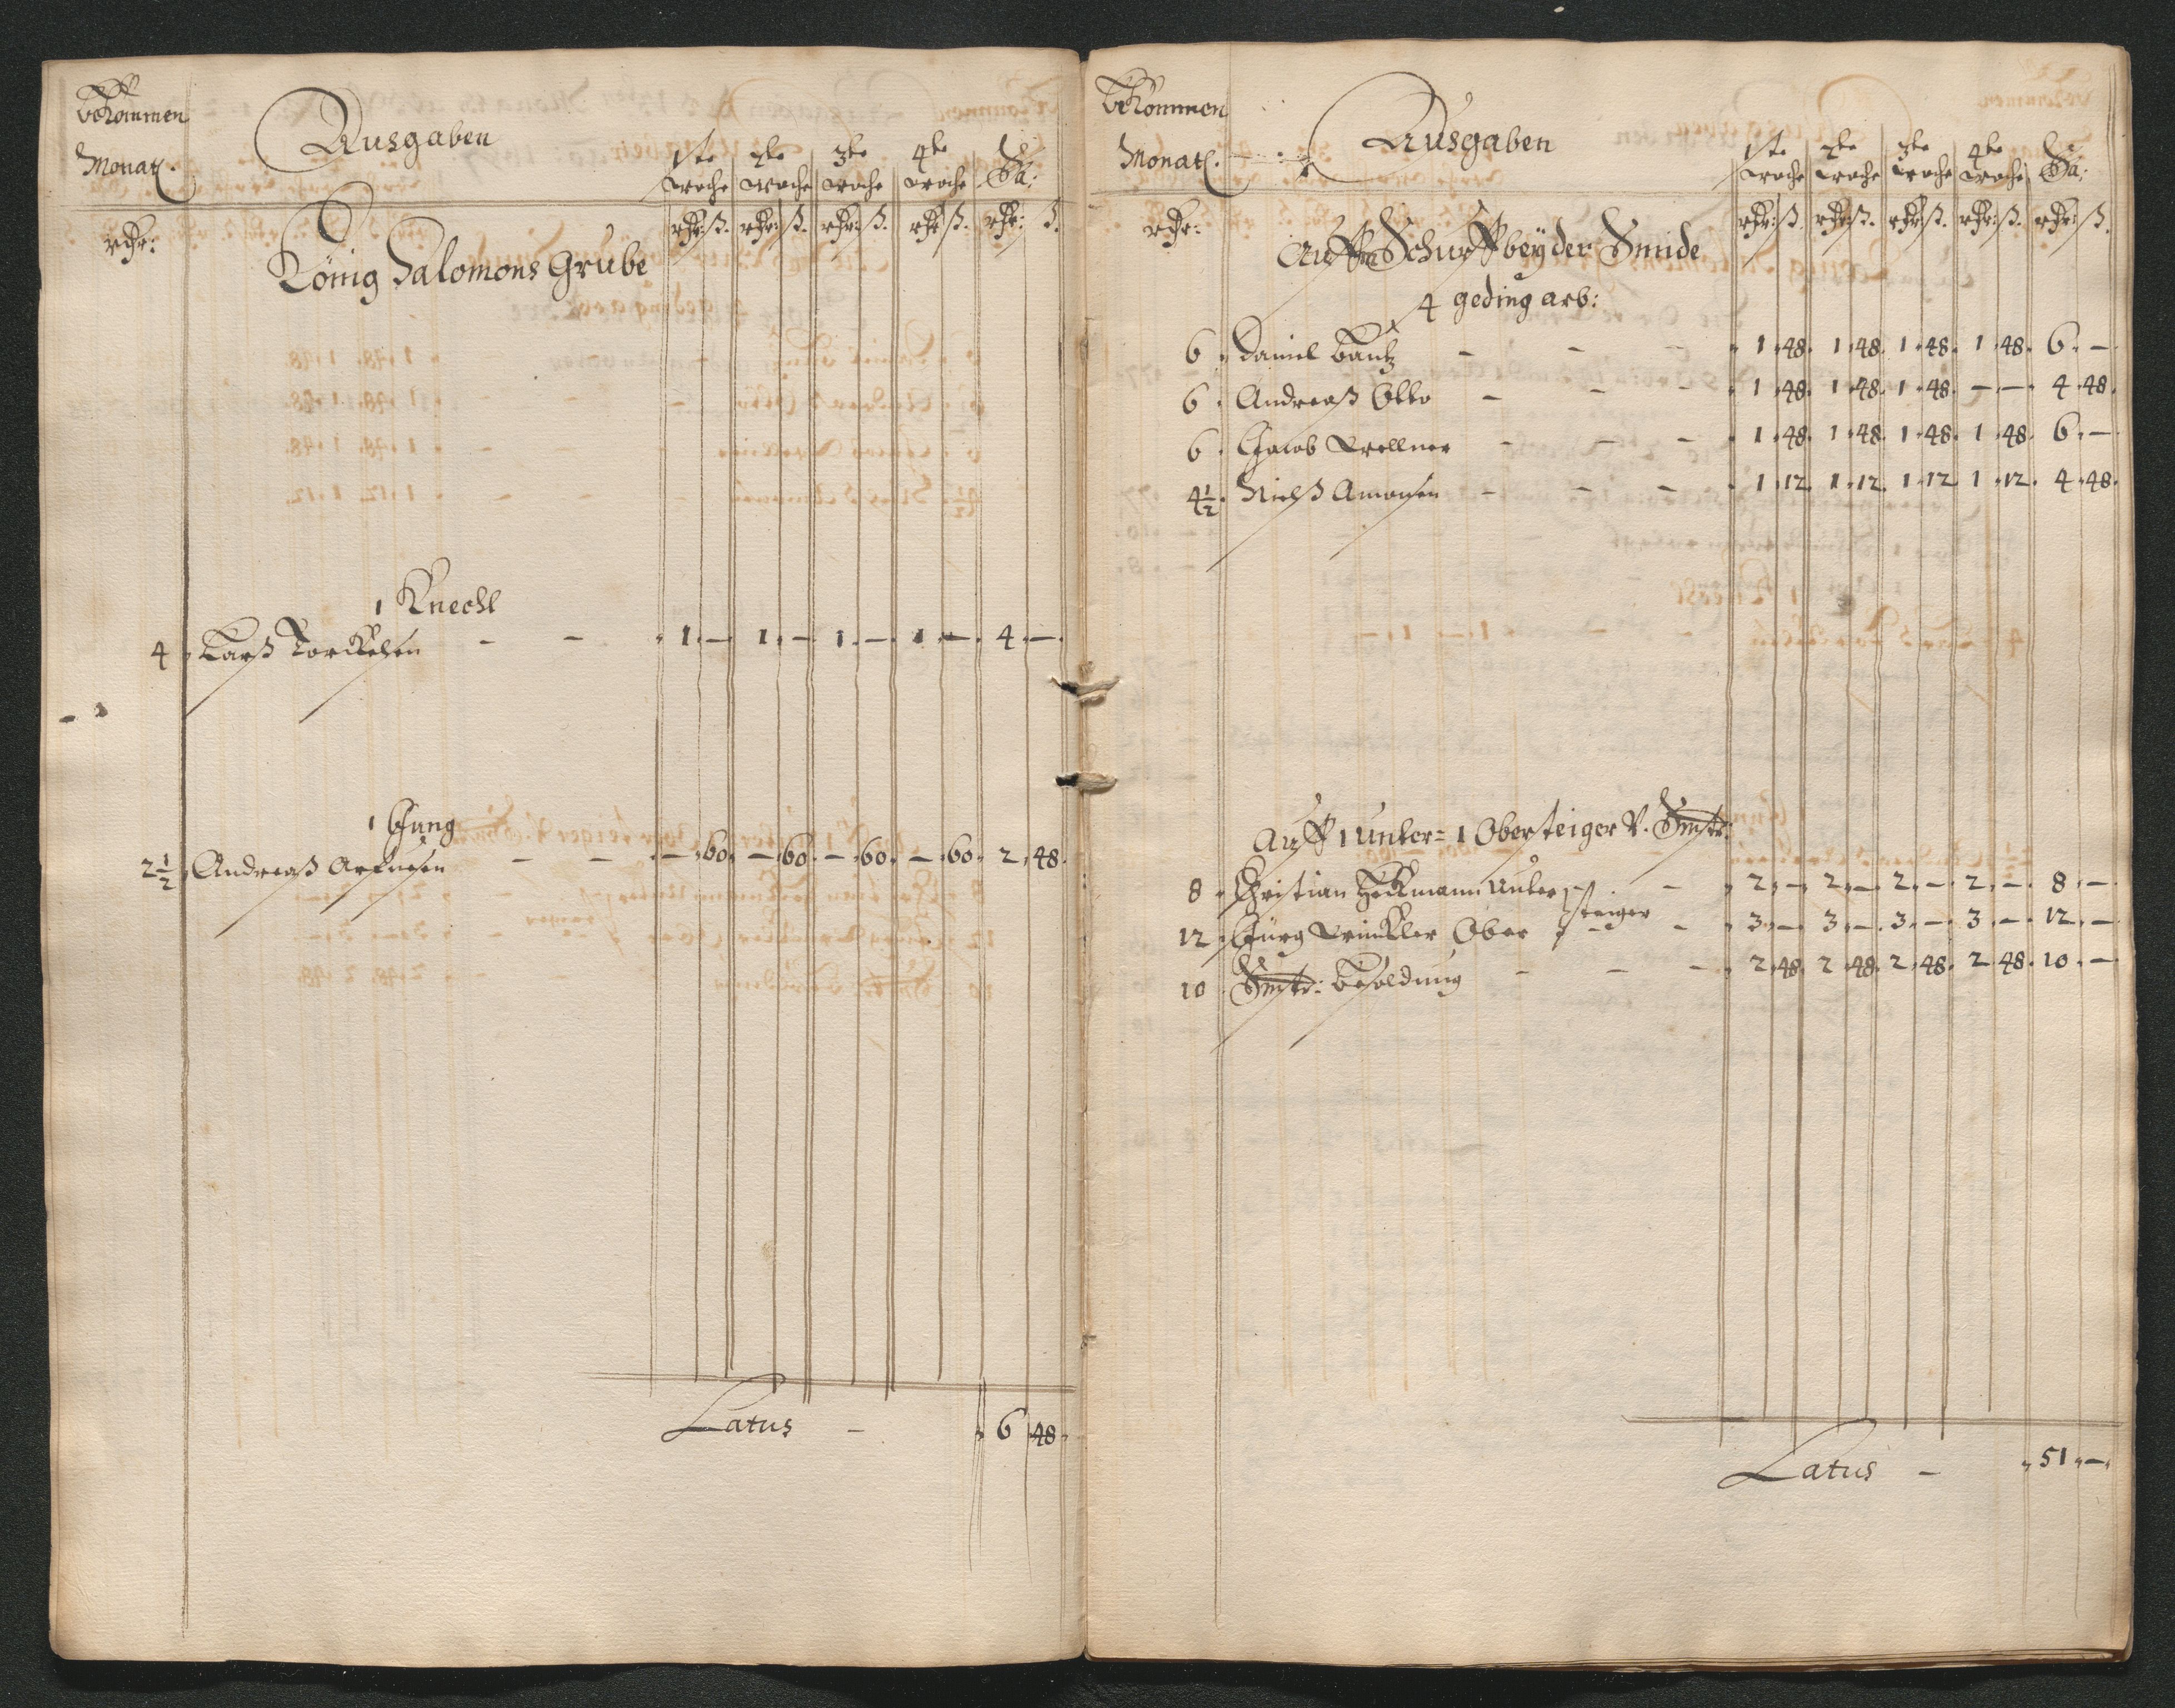 bekommen
Monatl.
Ausgaben
1te woche 2te woche 3te woche 4te woche Sa:
rthr: rthr: ß. rthr: ß. rthr: ß. rthr: ß. rthr: ß.
König Salomons Grube
1 Knecht
4 Larß Torckelsen - - 1 - 1 - 1 - 1 - 4 -
1 Jung
2 1/2 Andreaß - - - 60 - 60 - 60 - 60 2 48
Latus - 6 48
bekommen
Monatl.
Ausgaben
1te woche 2te woche 3te woche 4te woche Sa:
rthr: rthr: ß. rthr: ß. rthr: ß. rthr: ß. rthr: ß.
Auffm Schurff bey der Smide
4 geding arb:
6 Daniel Bautz - - - 1 48 1 48 1 48 1 48 6 -
6 Andreaß Otto - - - 1 48 1 48 1 48 - - 4 48
6 Jacob Wellner - - - 1 48 1 48 1 48 1 48 6 -
4 1/2 Nielß Amonsen - - - 1 12 1 12 1 12 1 12 4 48
Auff 1 Unter= 1 Obersteiger V. Smstr:
8 Christian Heckmann Unter steiger - 2 - 2 - 2 - 2 - 8 -
12 Jürg Winckler Ober - - 3 - 3 - 3 - 3 - 12 -
10 Smstr: besoldung - - - 2 48 2 48 2 48 2 48 10 -
Latus - 51 -